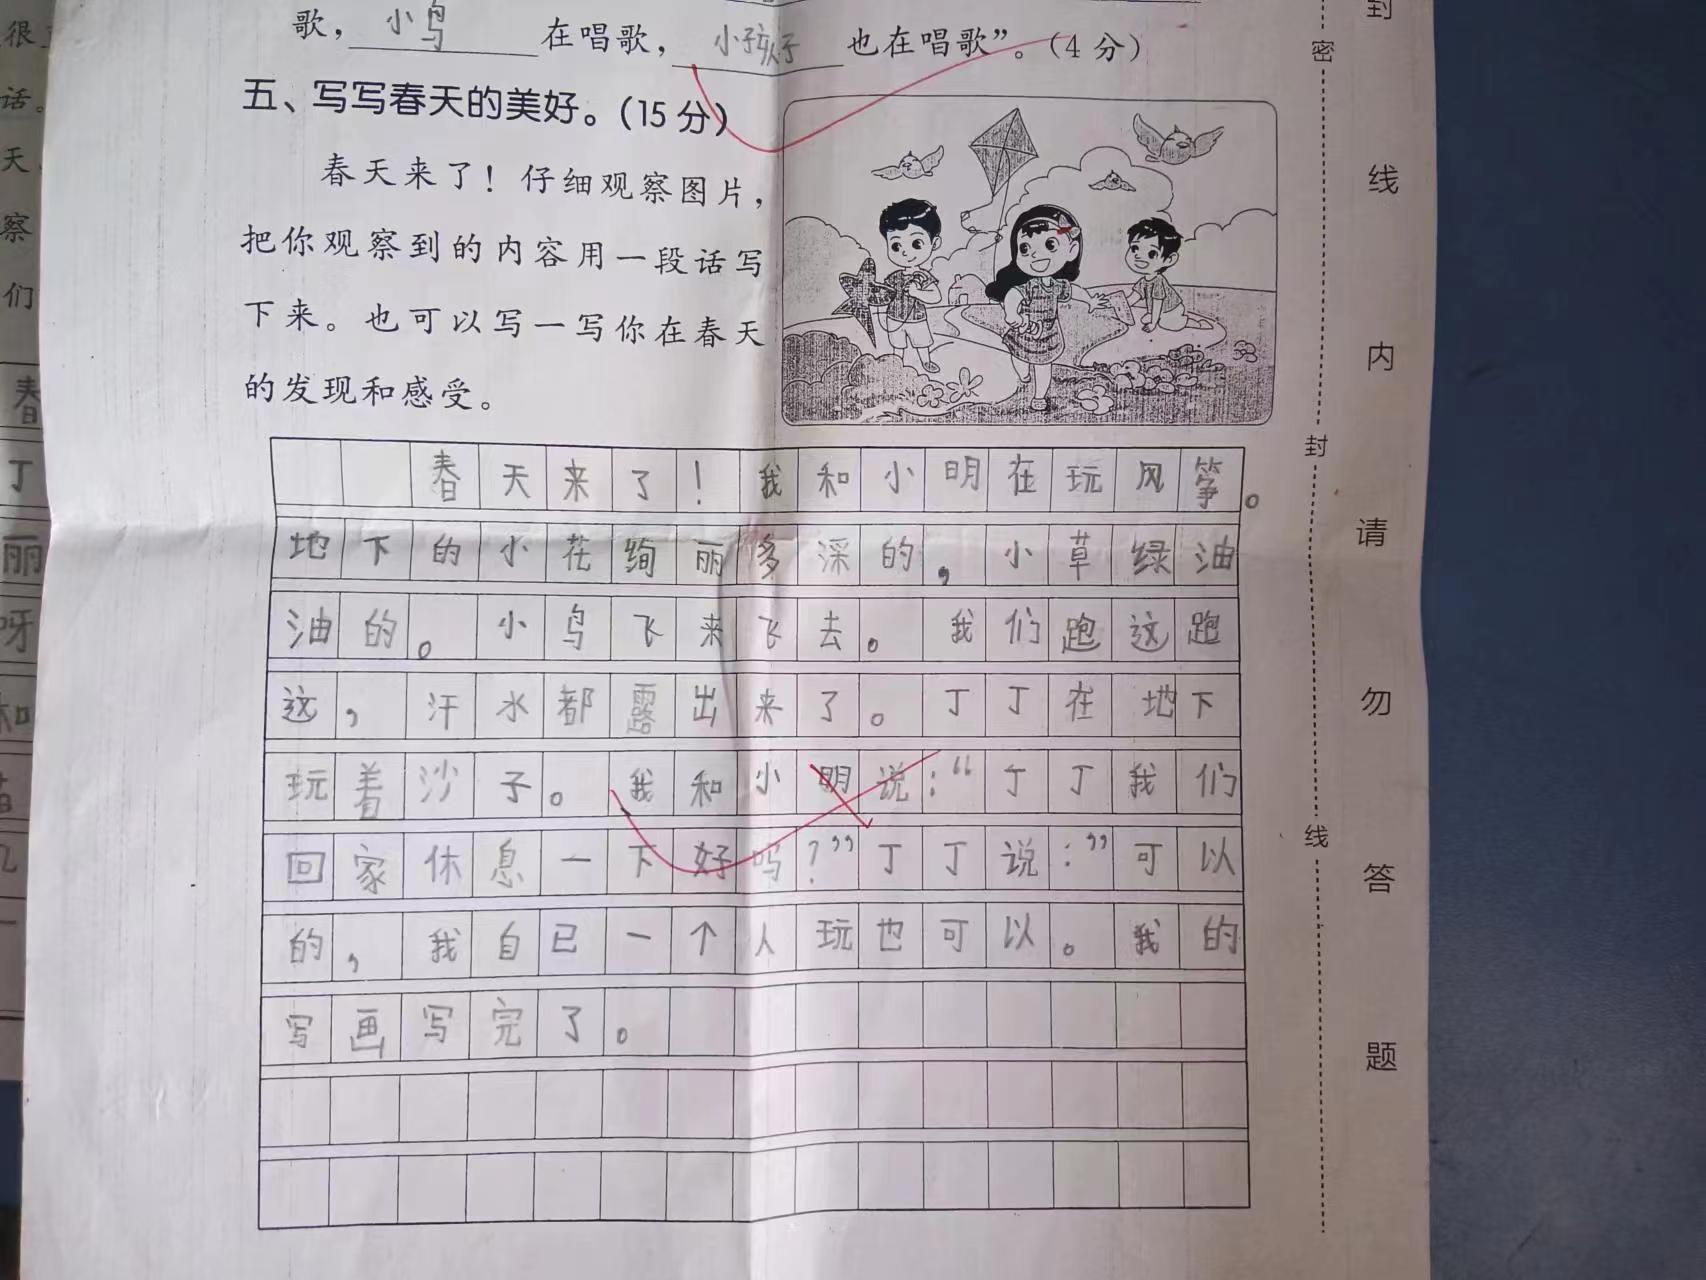 歌，小鸟在唱歌，小孩子也在唱歌”。（4分）
五、写写春天的美好。（15分）
春天来了！仔细观察图片，
把你观察到的内容用一段话写
下来。也可以写一写你在春天
的发现和感受。
春天来了！我和小明在玩风筝。
地下的小花绚丽多深的，小草绿油
油的。小鸟飞来飞去。我们跑这跑
这，汗水都露出来了。丁丁在地下
玩着沙子。我和小明说：“丁丁我们
回家休息一下好吗？”丁丁说：”可以
的，我自已一个人玩也可以。我的
写画写完了。
封
密
线
内
封
请
勿
线
答
题
很
话。
天
察
们
春
丁
丽
呀
和